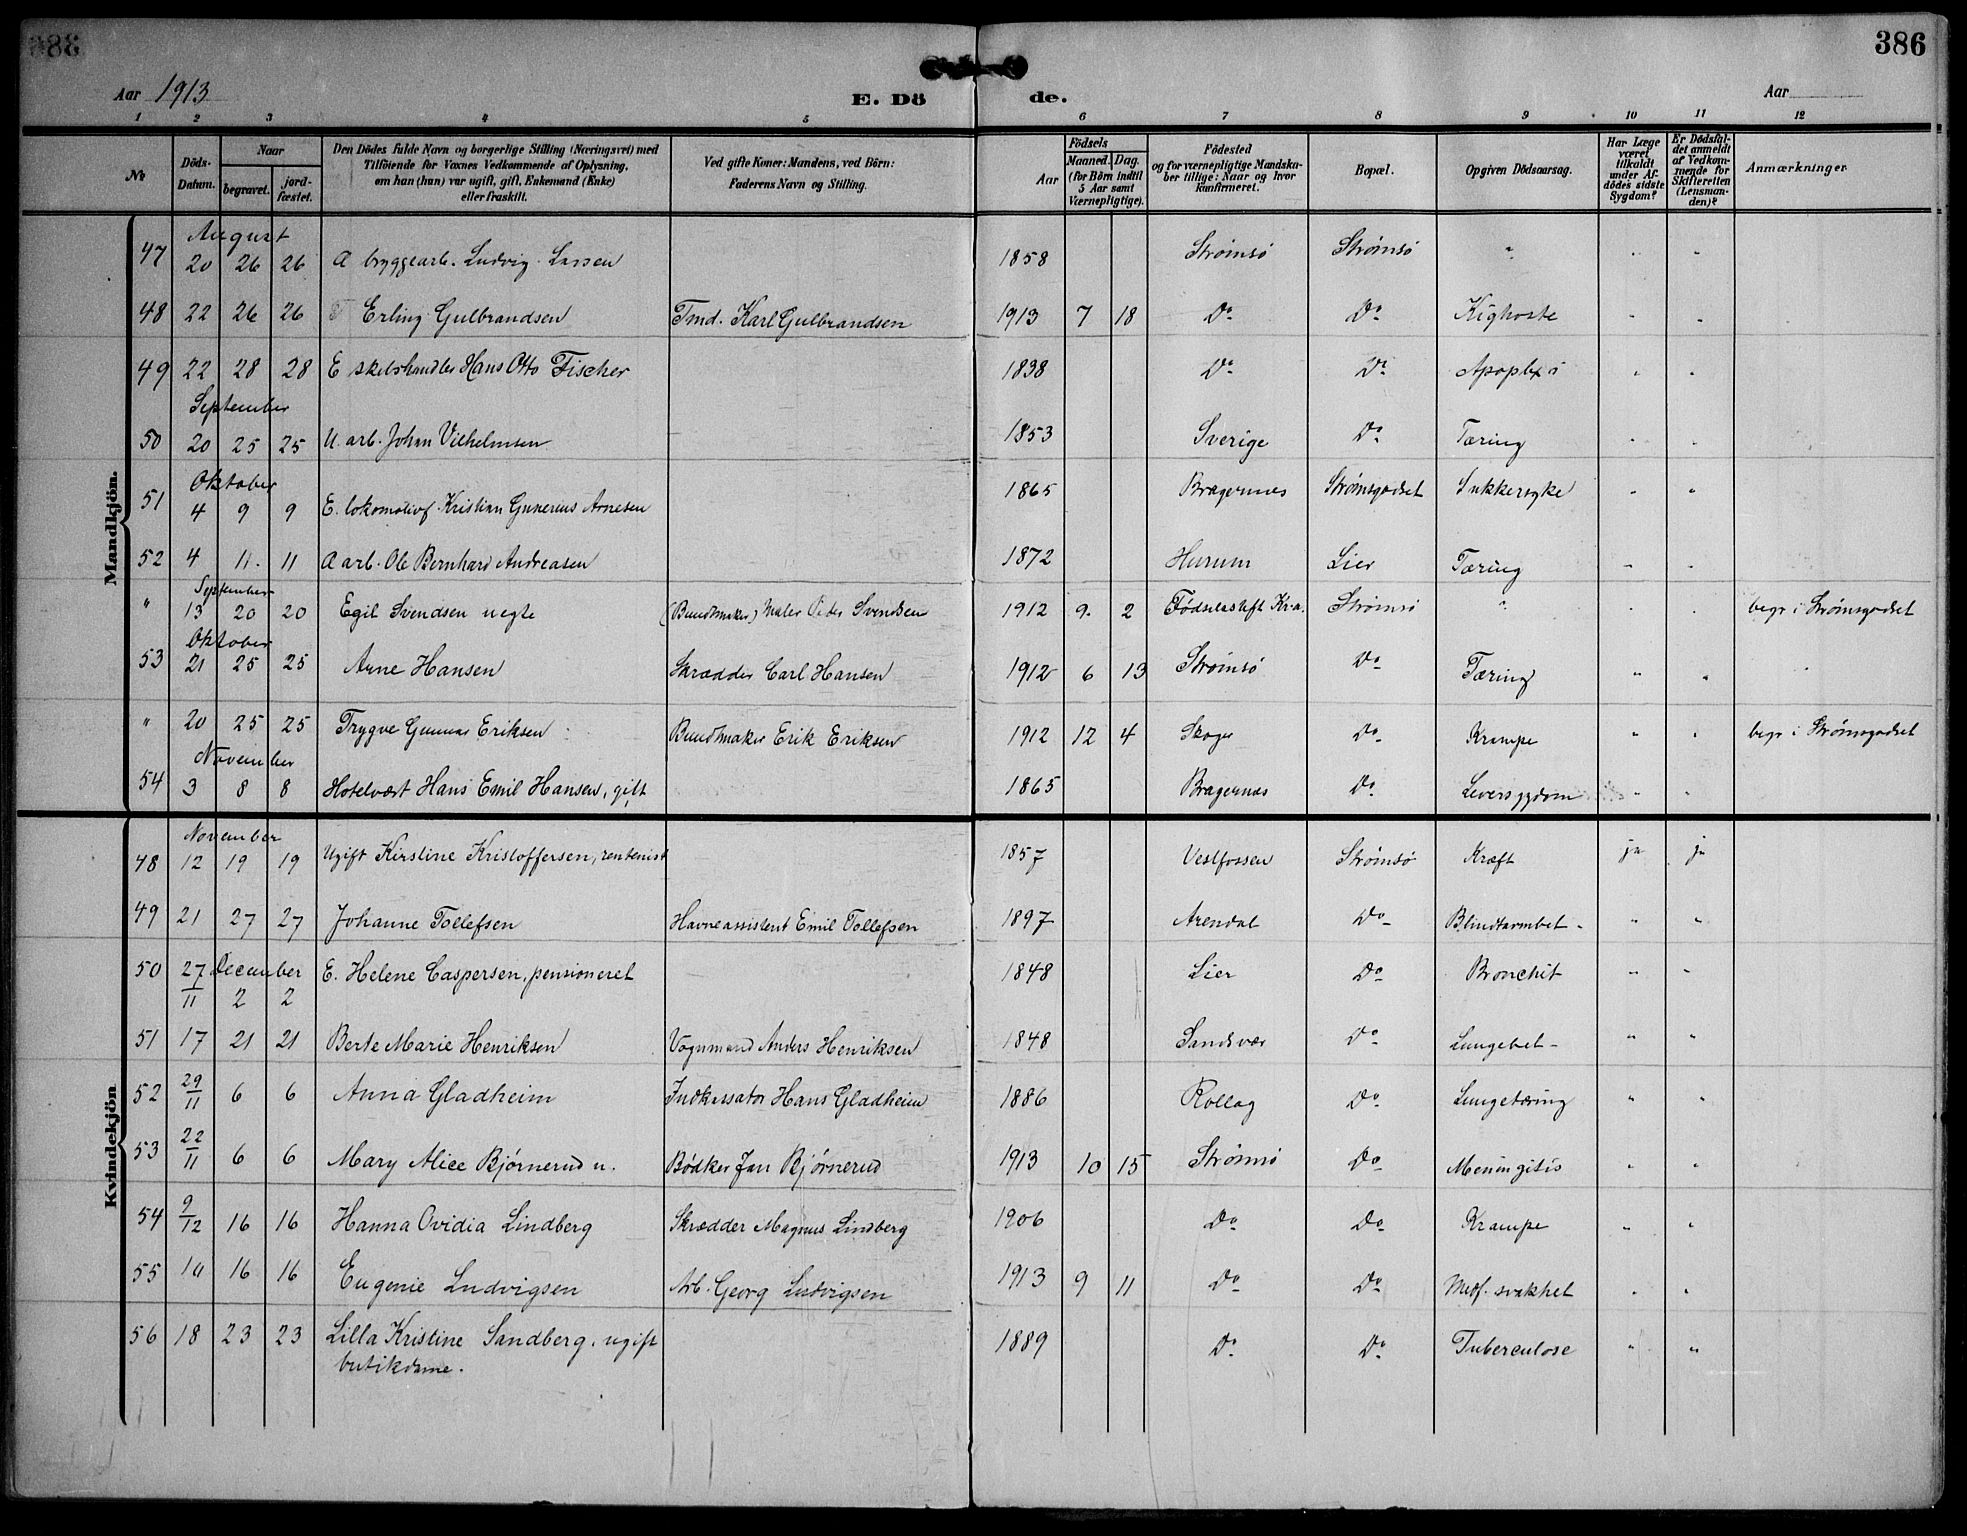 386
Aar 1913
E. Döde.
Aar
1 2 3 4 5 6 7 8 9 10 11 12
No
Döds-Datum.
Naar
begravet.
jord-fæstet.
Den Dödes fulde Navn og borgerlige Stilling (Næringsvei) med
Tilföiende for Voxnes Vedkommende af Oplysning,
om han (hun) var ugift, gift, Enkemand (Enke)
eller fraskilt.
Ved gifte Koner: Mandens, ved Börn:
Faderens Navn og Stilling.
Aar
Födsels
Maaned. Dag.
(for Börn indtil
5 Aar samt
Værnepligtige).
Födested
og for værnepligtige Mandska-
ber tillige: Naar og hvor
konfirmeret.
Bopæl.
Opgiven Dödsaarsag.
Har Læge
været
tilkaldt
under Af-
dödes sidste
Sygdom?
Er Dödsfal-
det anmeldt
af Vedkom-
mende for
Skifteretten
(Lensman-
den)?
Anmærkninger
Mandkjön.
August
47 20 26 26 A bryggearb. Ludvig Larsen 1858 Strømsø Strømsø " " "
48 22 26 26 Erling Gulbrandsen Tmd. Karl Gulbrandsen 1913 7 18 Do Do Kighoste " "
49 22 28 28 E skolehandler Hans Otto Fischer 1838 Do Do Apoplexi " "
September
50 20 25 25 U. arb. Johan Vilhelmsen 1853 Sverige Do Tæring " "
Oktober
51 4 9 9 E. lokomotivf. Kristian Gunerius Arnesen 1865 Bragernes Strømsgodset Sukkersyke " "
52 4 11 11 A arb. Ole Bernhard Andreasen 1872 Hurum Lier Tæring " "
September
" 13 20 20 Egil Svendsen uegte (Bundtmaker) Maler Peder Svendsen 1912 9 2 Fødselsstift Kr.a. Strømsø " " " begr i Strømsgodset
Oktober
53 21 25 25 Arne Hansen Skrædder Carl Hansen 1912 6 13 Strømsø Do Tæring " "
" 20 25 25 Trygve Gunnar Eriksen Bundtmaker Erik Eriksen 1912 12 4 Skoger Do Krampe " " begr i Strømsgodset
November
54 3 8 8 Hotelvært Hans Emil Hansen, gift 1865 Bragernes Do Leversygdom " "
Kvindekjön
November
48 12 19 19 Ugift Kirstine Kristoffersen, rentenist 1857 Vestfossen Strømsø Kræft ja ja
49 21 27 27 Johanne Tollefsen Havneassistent Emil Tollefsen 1897 Arendal Do Blindtarmbet. " "
December
50 27/11 2 2 E. Helene Caspersen, pensioneret 1848 Lier Do Bronchit " "
51 17 21 21 Berte Marie Henriksen Vognmand Anders Henriksen 1848 Sandsvær Do Lungebet " "
52 29/11 6 6 Anna Gladheim Indkassator Hans Gladheim 1886 Rollag Do Lungetæring " "
53 22/11 6 6 Mary Alice Bjørnerud u. Bødker Jan Bjørnerud 1913 10 15 Strømsø Do Meningitis " "
54 9/12 16 16 Hanna Ovidia Lindberg Skrædder Magnus Lindberg 1906 Do Do Krampe " "
55 10 16 16 Eugenie Ludvigsen Arb. Georg Ludvigsen 1913 9 11 Do Do Medf. svakhet " "
56 18 23 23 Lilla Kristine Sandberg, ugift 1889 Do Do Tuberculose " "
butikdame.